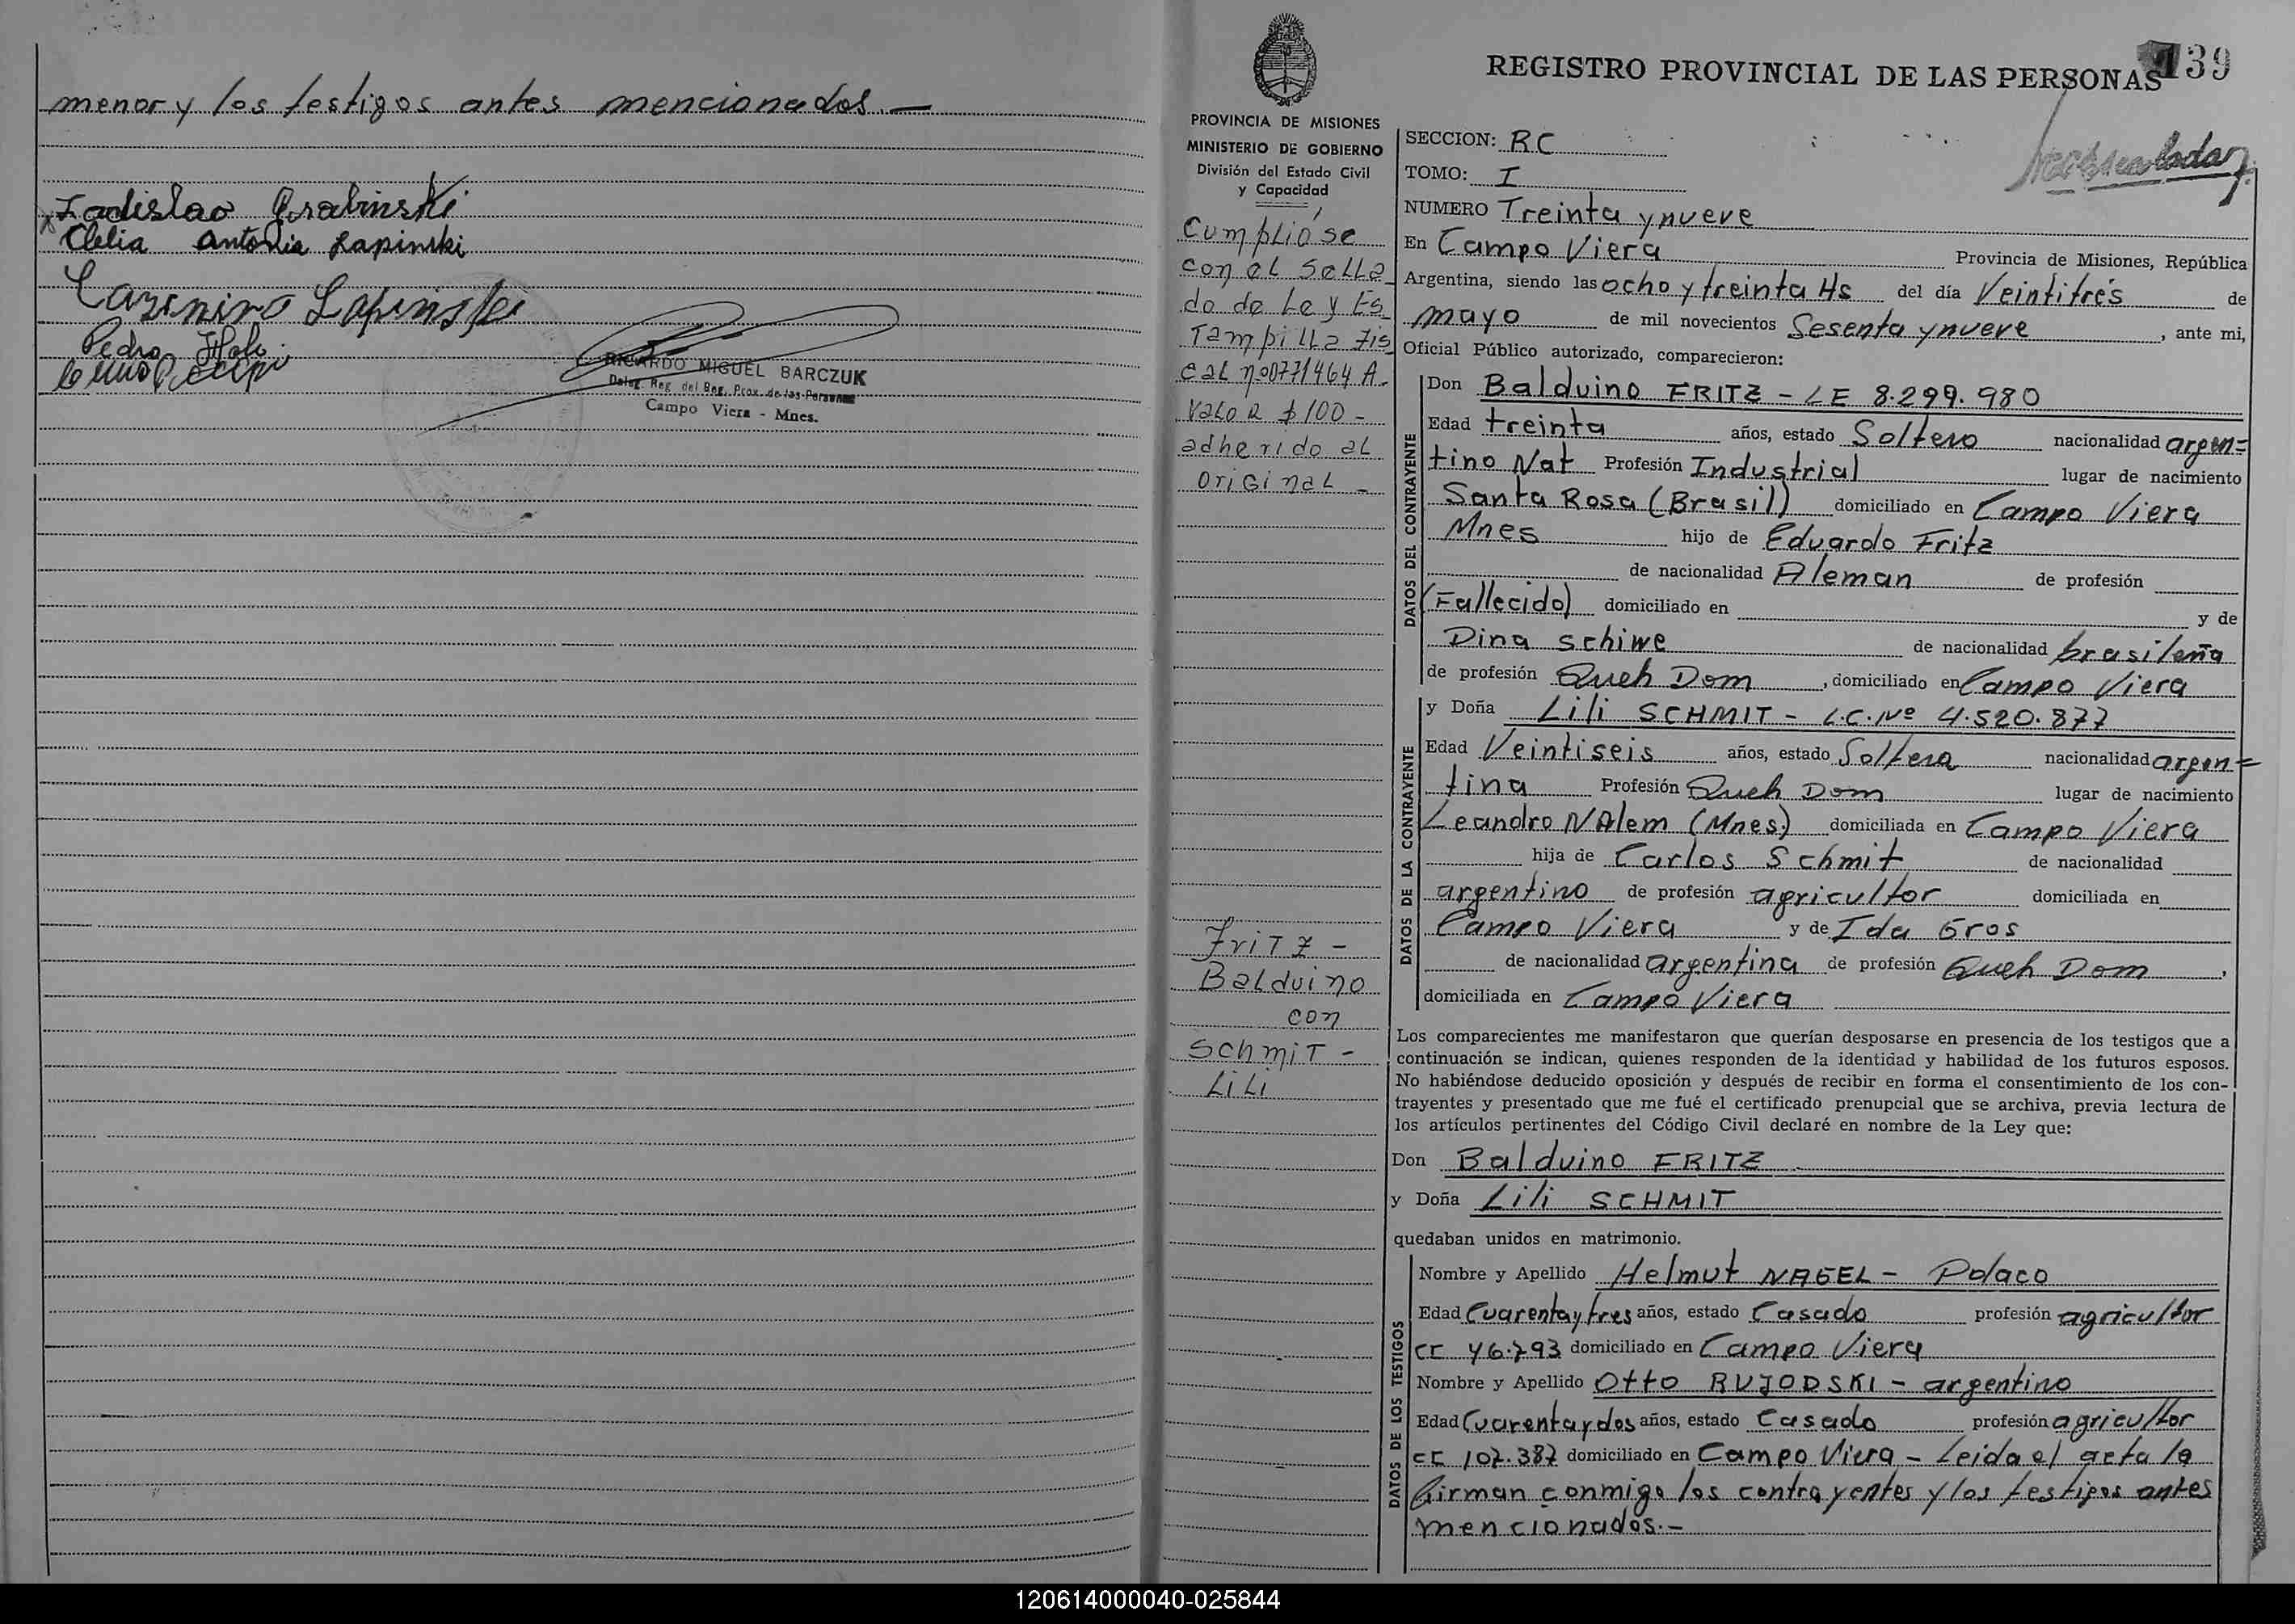 menor y los testigos antes mencionados.—
Ladislao Grabinski
Clelia Antonia Lapinski
Casimiro Lapinski
Pedro
RICARDO MIGUEL BARCZUK
Deleg. Reg. del Reg. Prov. de las Personas
Campo Viera - Mnes.
139
REGISTRO PROVINCIAL DE LAS PERSONAS
PROVINCIA DE MISIONES
MINISTERIO DE GOBIERNO
División del Estado Civil
y Capacidad
Cumplióse
con el Sella
do de Ley Es
Tampilla Fis
cal nº0771464 A.
Valor $100-
adherido al
original -
Fritz -
Balduino
con
Schmit -
Lili
SECCION: RC
TOMO: I
NUMERO Treinta y nueve
En Campo Viera Provincia de Misiones, República
Argentina, siendo las ocho y treinta Hs del día Veintitrés de
mayo de mil novecientos Sesenta y nueve, ante mi,
Oficial Público autorizado, comparecieron:
DATOS DEL CONTRAYENTE
Don Balduino FRITZ - LE 8.299.980
Edad treinta años, estado Soltero nacionalidad argen=
tino Nat Profesión Industrial lugar de nacimiento
Santa Rosa (Brasil) domiciliado en Campo Viera
Mnes hijo de Eduardo Fritz
de nacionalidad Aleman de profesión
(Fallecido) domiciliado en y de
Dina Schiwe de nacionalidad brasileña
de profesión Queh Dom, domiciliado en Campo Viera
DATOS DE LA CONTRAYENTE
y Doña Lili SCHMIT - L.C. Nº 4.520.877
Edad Veintiseis años, estado Soltera nacionalidad argen=
tina Profesión Queh Dom lugar de nacimiento
Leandro N Alem (Mnes) domiciliada en Campo Viera
hija de Carlos Schmit de nacionalidad
argentino de profesión agricultor domiciliada en
Campo Viera y de Ida Gros
de nacionalidad argentina de profesión Queh Dom,
domiciliada en Campo Viera
Los comparecientes me manifestaron que querían desposarse en presencia de los testigos que a
continuación se indican, quienes responden de la identidad y habilidad de los futuros esposos.
No habiéndose deducido oposición y después de recibir en forma el consentimiento de los con-
trayentes y presentado que me fué el certificado prenupcial que se archiva, previa lectura de
los artículos pertinentes del Código Civil declaré en nombre de la Ley que:
Don Balduino FRITZ
y Doña Lili SCHMIT
quedaban unidos en matrimonio.
DATOS DE LOS TESTIGOS
Nombre y Apellido Helmut NAGEL - Polaco
Edad Cuarenta y tres años, estado Casado profesión agricultor
CI 46.793 domiciliado en Campo Viera
Nombre y Apellido Otto RUJODSKI - argentino
Edad Cuarenta y dos años, estado Casado profesión agricultor
CI 107.387 domiciliado en Campo Viera - Leida el acta la
firman conmigo los contrayentes y los testigos antes
mencionados.-
120614000040-025844